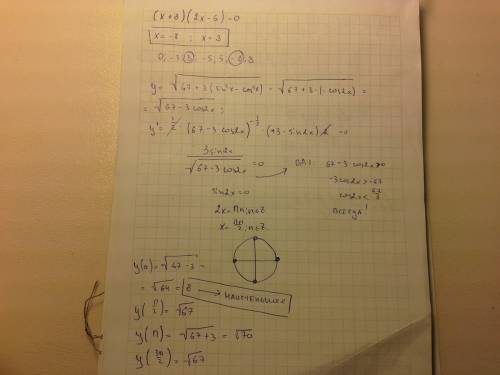 (x+8)(2x-6)=0
x=-8 ; x=3
0; -3; 3; -5; 5; -8; 8
y = √67+3(sin²x-cos²x) = √67+3·(-cos2x) =
= √67-3cos2x ;
y' = 1/2 · (67-3cos2x)^-1/2 · (+3·sin2x)·2 =0
3sin2x / √67-3cos2x =0
ОДЗ: 67-3cos2x>0
-3cos2x>-67
cos2x< 67/3
всегда!
sin2x=0
2x=Πn; n∈Z
x= Πn/2; n∈Z
y(0)= √67-3 =
= √64 = 8 → наименьшее
y(Π/2) = √67
y(Π) = √67+3 = √70
y(3Π/2) = √67